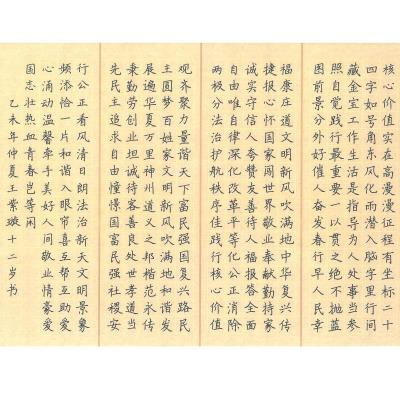 核心价值实在高漫漫征程有坐标二十
四字如号角东风化雨潜入脑字里行间
藏金宝工作生活是指导为人处事当参
照自觉践行最重要一以贯之绝不抛蓝
图前景分外好催人奋发春行早人民幸
福康庄道文明新风吹满地中华复兴传
捷报心怀国家闯世界敬业奉献勤持家
诚实守信人夸赞友善待人福报答全面
自由唯自律深化改革平等化公正消除
两极分法治护航秩序佳践行核心价值
观齐聚力量谐天下富民强国复兴路民
主圆梦百姓家文明新风吹满地和谐发
展遍华夏万里神州道义之邦楷范永传
秉勤劳创业坦诚待客善良处世孝道当
先民主追求自由憧憬国富民强社稷安
行公正看风清日朗法治新天文明景象
频添恰一片和谐入眼帘喜互帮互助爱
心涌动温馨牵手美好人间敬业情豪爱
国志壮热血青春岂等闲
乙未年仲夏王紫璇十二岁书